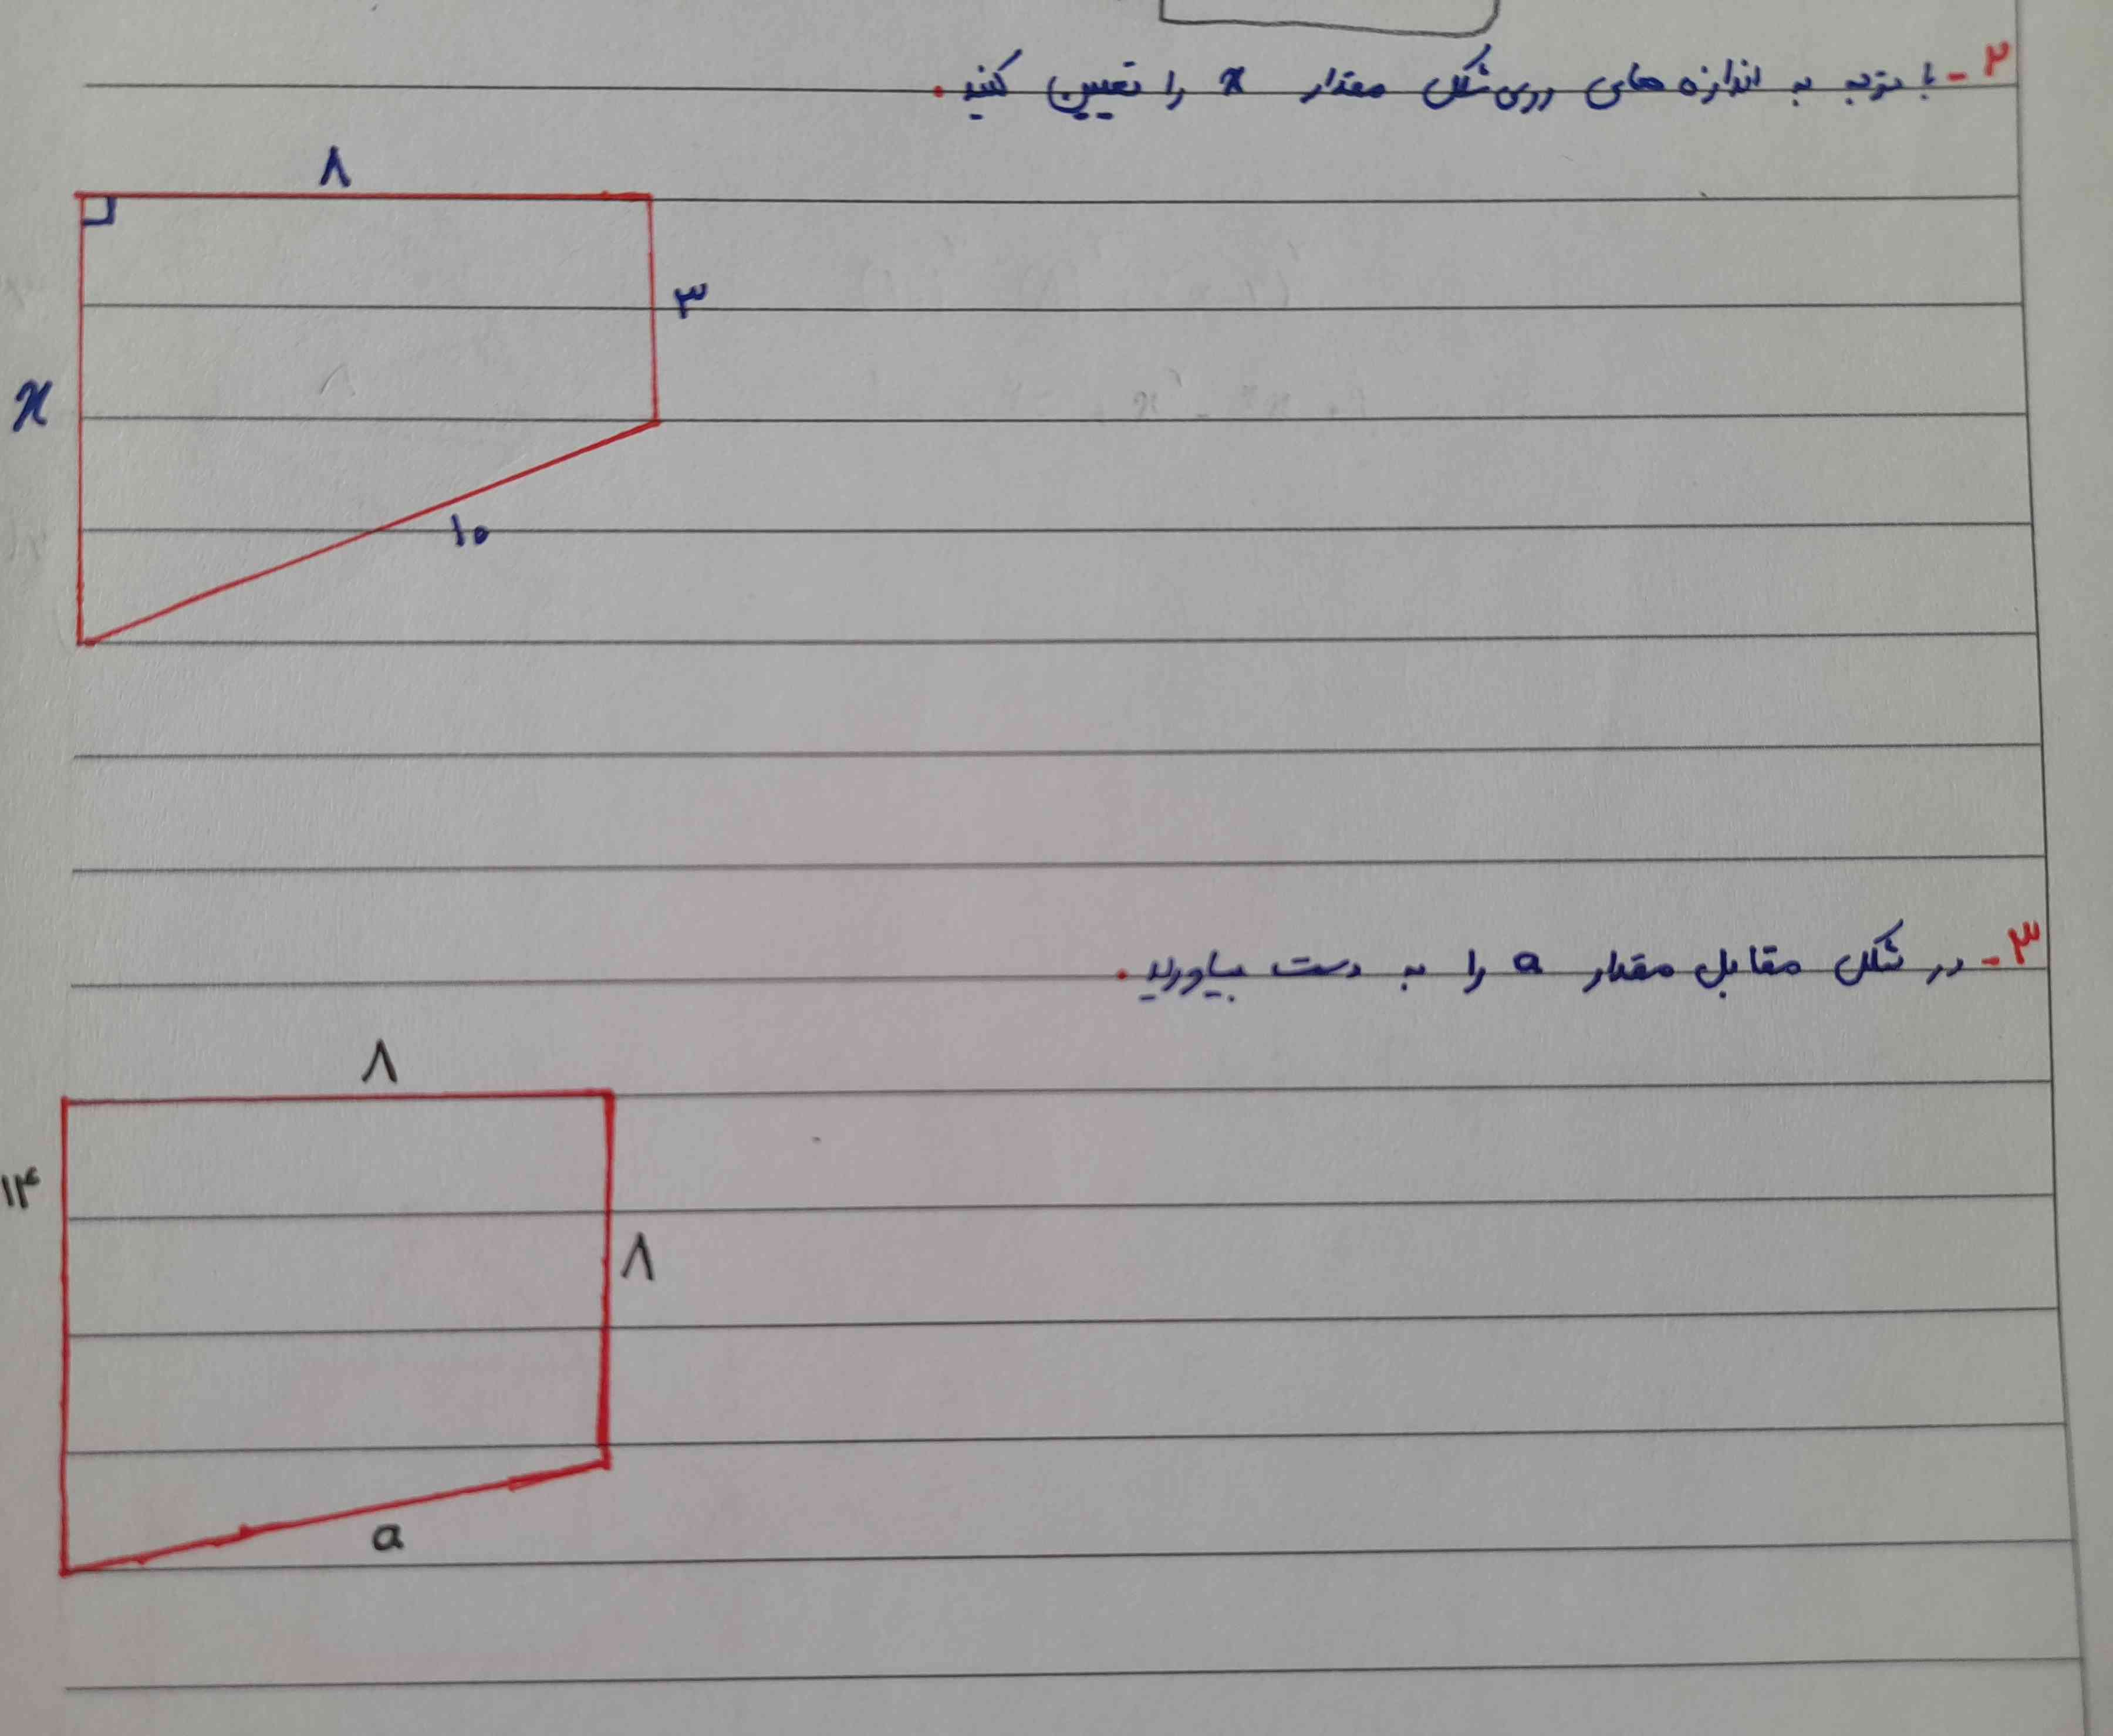 ۲- با توجه به اندازه های روی شکل مقدار x را تعیین کنید.
۸
۳
x
۱۰
۳- در شکل مقابل مقدار a را به دست بیاورید.
۸
۱۴
۸
a